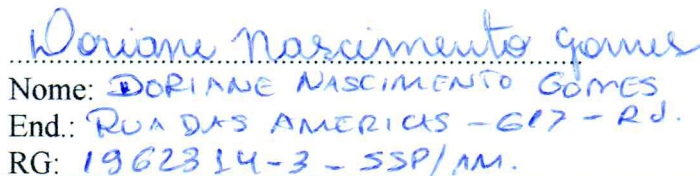 Doriane Nascimento Gomes
Nome: DORIANE NASCIMENTO GOMES
End.: RUA DAS AMERICAS - 617 - RJ.
RG: 1962314-3 - SSP/AM.